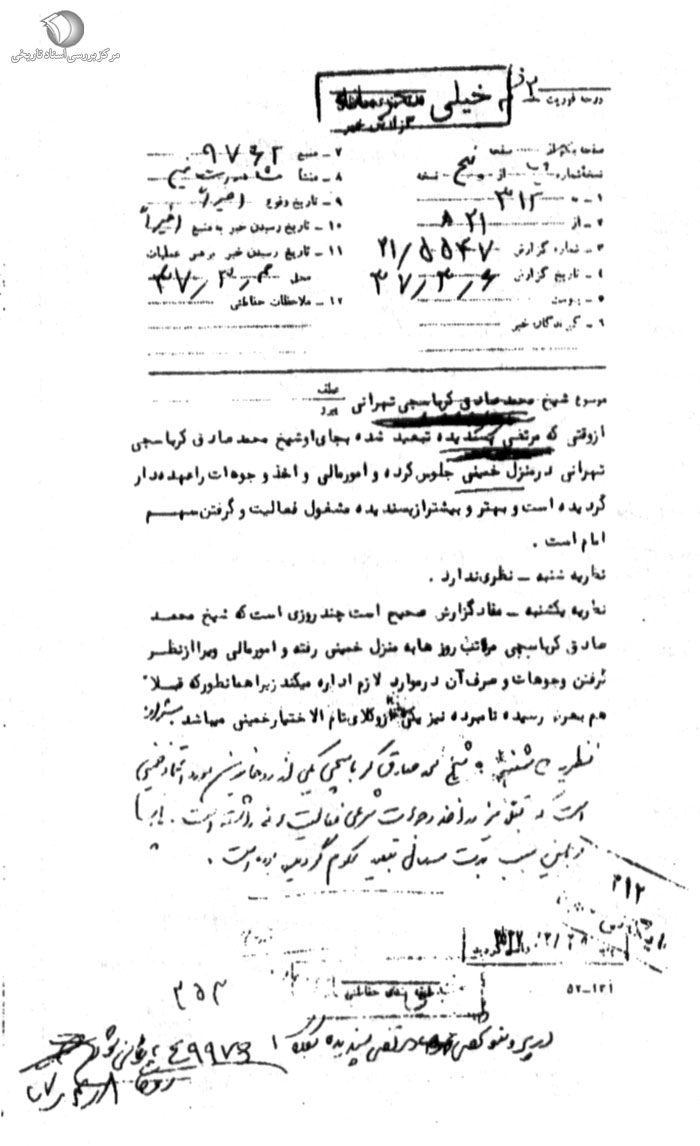 مرکز بررسی اسناد تاریخی
درجه فوریت
خیلی
گزارش خبر
صفحه یک از صفحه
نسخه شماره از پنج نسخه
۱ – به ۳۱۲
۲ – از ۲۱ ﻫ
۳ – شماره گزارش ۲۱/۵۵۴۷
۴ – تاریخ گزارش ۴۷/۳/۶
۵ – پیوست
۶ – گیرندگان خبر
۷ – منبع ۹۷۶۲
۸ – منشأ
۹ – تاریخ وقوع اخیراً
۱۰ – تاریخ رسیدن خبر به منبع اخیراً
۱۱ – تاریخ رسیدن خبر برهبر عملیات
محل ۴۷/۳/
۱۲ – ملاحظات حفاظتی
موضوع شیخ محمد صادق کرباسچی تهرانی عطف پیرو
ازوقتی که مرتضی پسندیده تبعید شده بجای او شیخ محمد صادق کرباسچی
تهرانی درمنزل خمینی جلوس کرده و امورمالی و اخذ وجوهات راعهده‌دار
گردیده است و بهتر و بیشترازپسندیده مشغول فعالیت و گرفتن سهم
امام است .
نظریه شنبه – نظری ندارد .
نظریه یکشنبه – مفاد گزارش صحیح است چند روزی است که شیخ محمد
صادق کرباسچی مرتب روزها به منزل خمینی رفته و امورمالی ویرا ازنظر
گرفتن وجوهات و صرف آن درموارد لازم اداره میکند زیرا همانطورکه قبلا"
هم بعرض رسیده نامبرده نیز یکی ازوکلای تام الاختیار خمینی میباشد
نظریه شنبه شیخ محمد صادق کرباسچی یکی از روحانیون مورد اعتماد خمینی
است که قبلا نیز در اخذ وجوهات شرعی فعالیت داشته است .
و بهمین سبب بمدت سال تبعید محکوم گردیده بوده است .
۳۱۲
طبقه بندی حفاظتی
۵۲–۱۲۱
۳۵۳
در پرونده مرتضی پسندیده کلاسه ۴۹۹۷۶ بایگانی شود